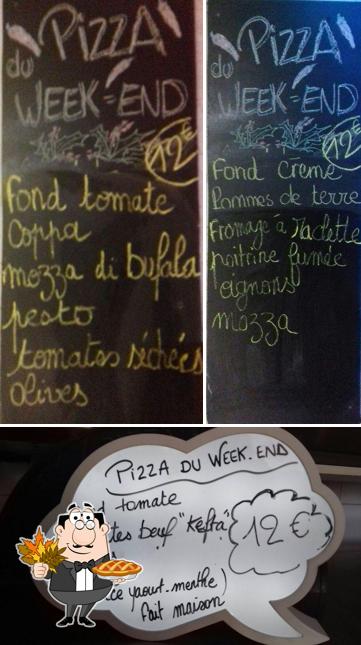 PIZZA
du
WEEK-END
12€
Fond tomate
Coppa
mozza di bufala
pesto
tomates séchées
Olives
PIZZA
du
WEEK-END
12€
Fond crème
Pommes de terre
Fromage à raclette
poitrine fumée
oignons
mozza
PIZZA DU WEEK-END
tomate
beuf "Kefta"
12 €
yaourt-menthe)
fait maison